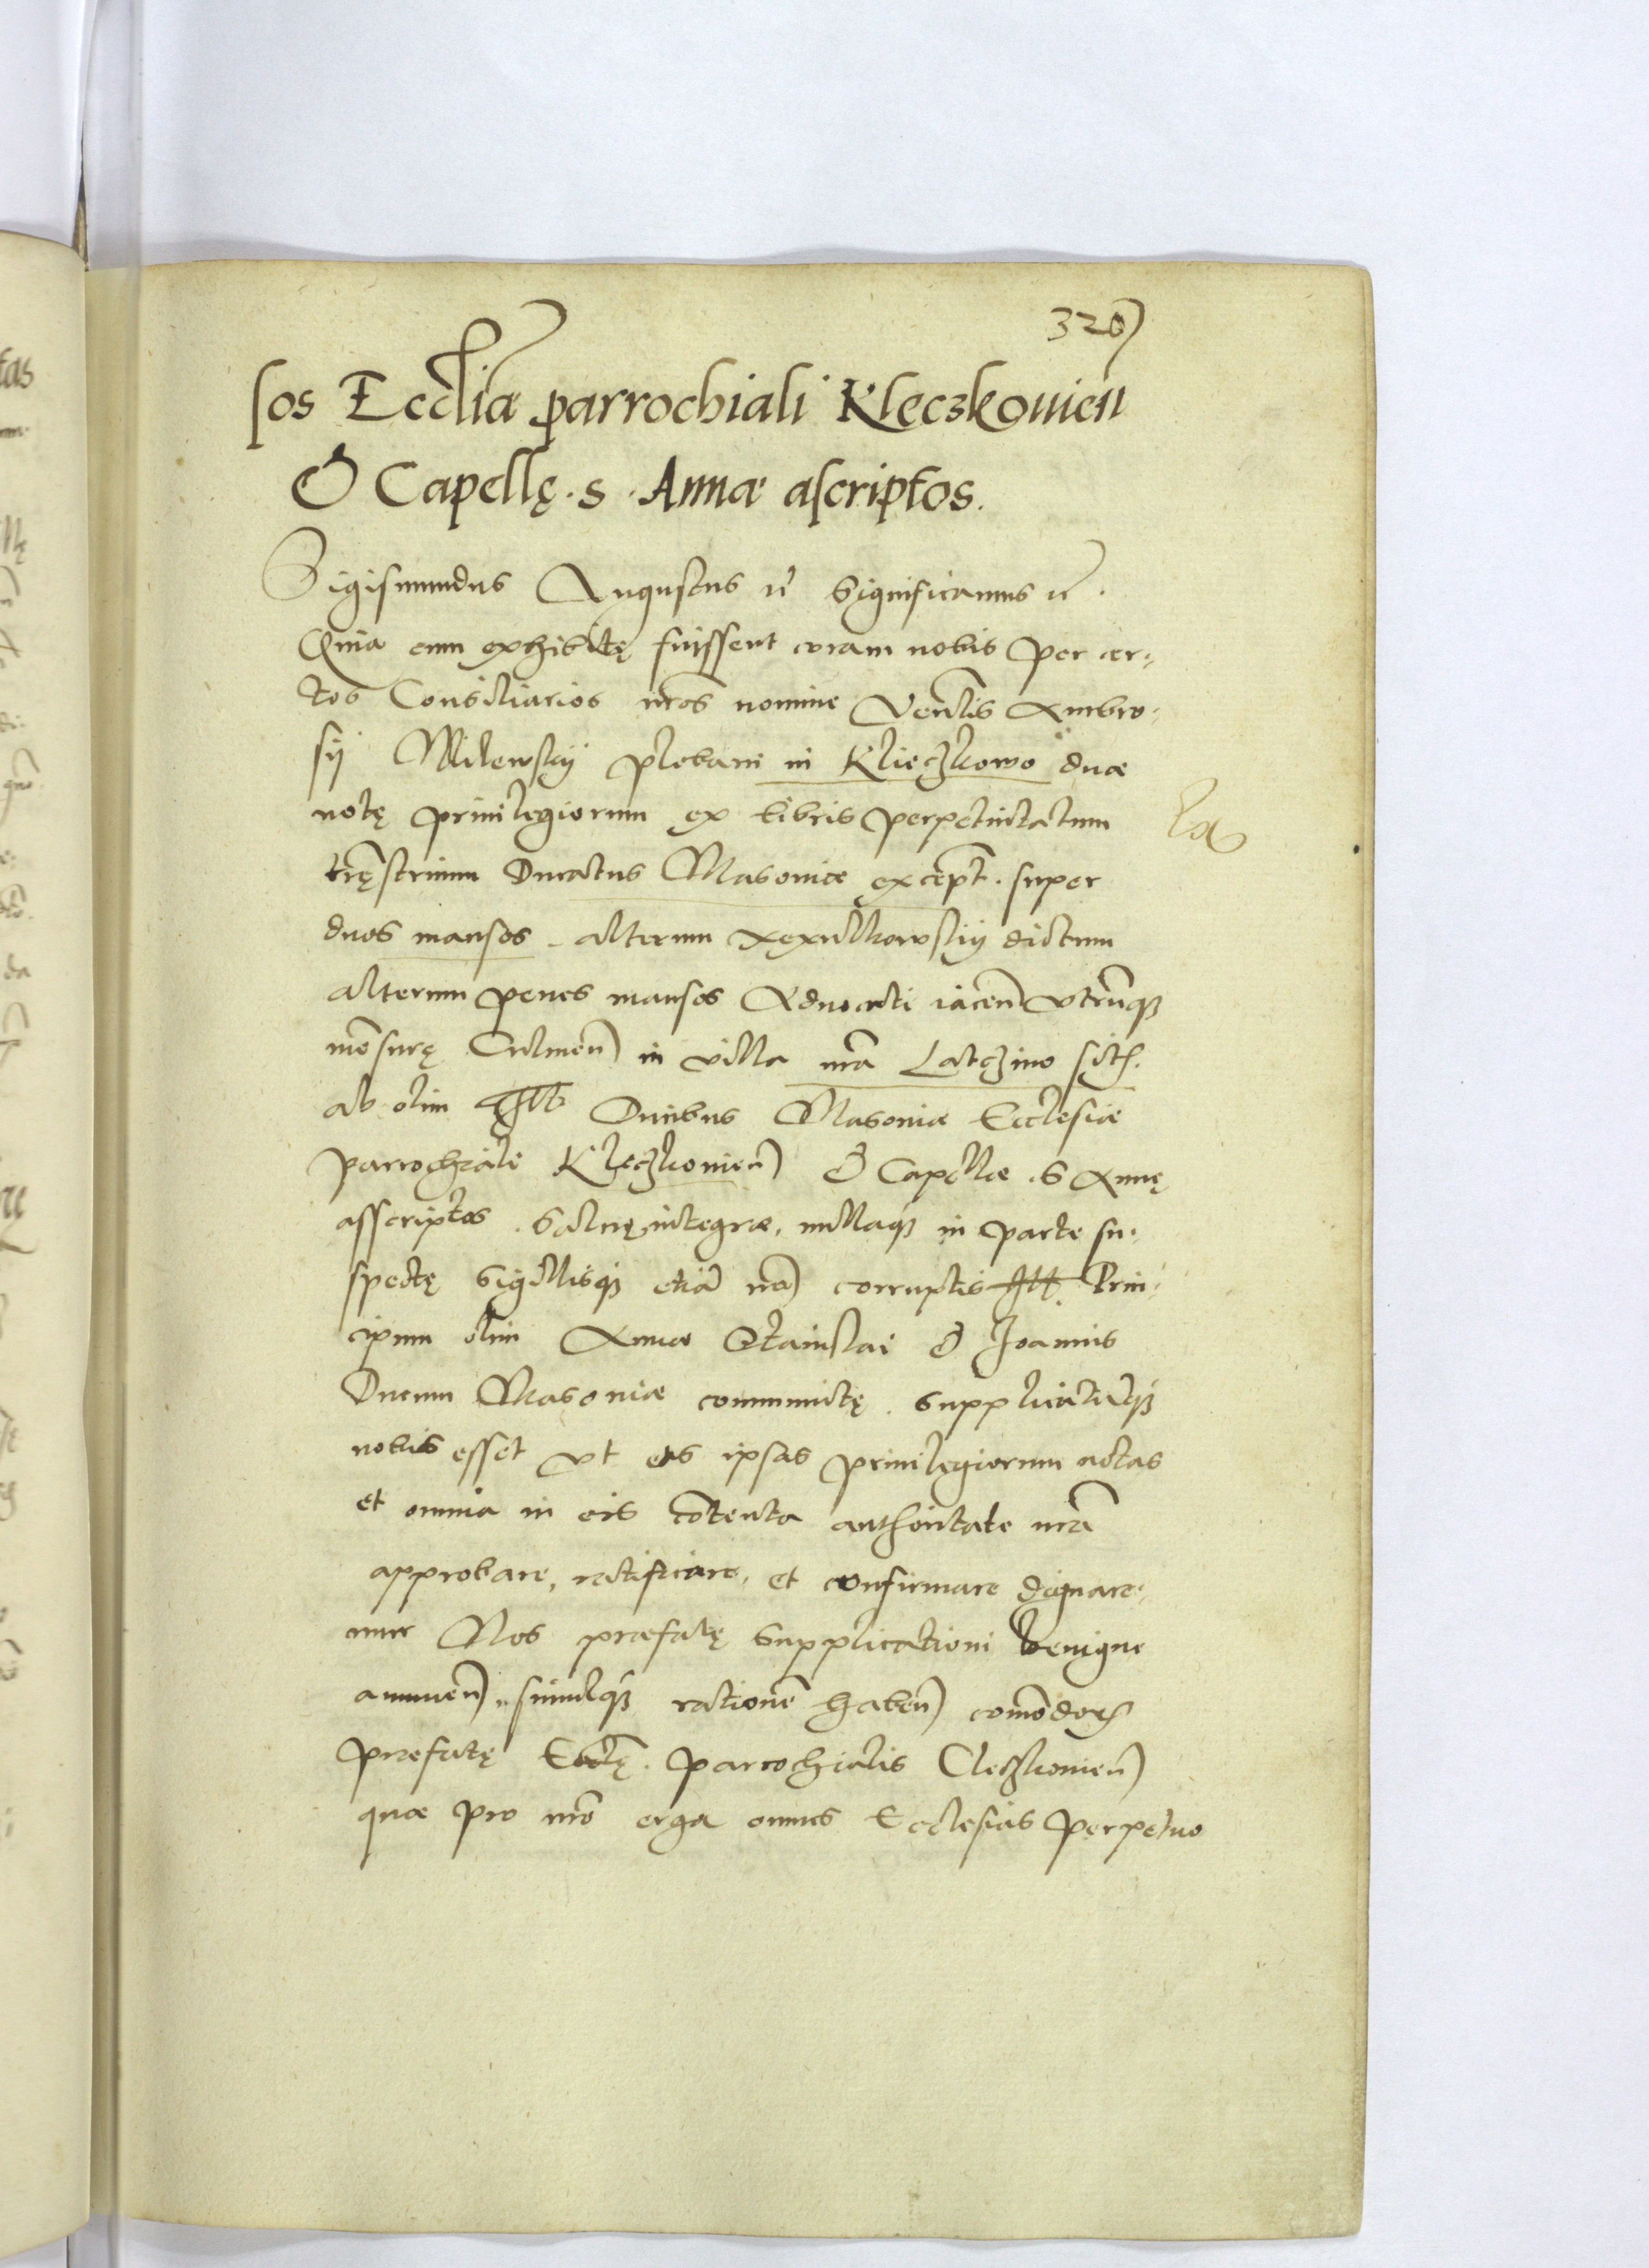 320)
sos Eccliæ parrochiali Kleczkouien̄
Et Capellę · s · Annæ ascriptos.
Sigismundus Augustus etc̄ Significamus etc̄ .
Quia cum exhibitę fuissent coram nobis per cer-
tos Consiliarios nr̄os nomine Ven̄lis Ambro-
sij Milewskij plebani in Klieczkowo duæ
notę priuilegiorum ex libris perpetuitatum
trr̄ęstrium Ducatus Masouiæ except̄ . super
duos mansos alterum dictum
alterum penes mansos Aduocati iacen̄ vtrūq3
mēsurę Culmen̄ in villa nr̄a Lateczino sit.
ab olim Ill Ducibus Masouiæ Ecclesiæ
parrochiali Kleczkouien̄ Et Capellæ . S Annę
asscriptos . Saluę integræ, nullaq3 in parte su-
spectę Sigillisq3 etiā nō corruptis Ill. Prin-
cipum olim Annæ Stanislai Et Joannis
Ducum Masouiæ communitę . supplicatūq3
nobis esset vt eas ipsas priuilegiorum notas
et omnia in eis cōtenta authoritate nr̄a
approbare, ratificare, et confirmare dignare-
mur Nos præfatę supplicationi benigne
annuen̄ simulq3 rationē haben̄ comōdor
præfatę Ecclę . parrochialis Cleczkouien̄
quæ pro nr̄o erga omnes Ecclesias perpetuo